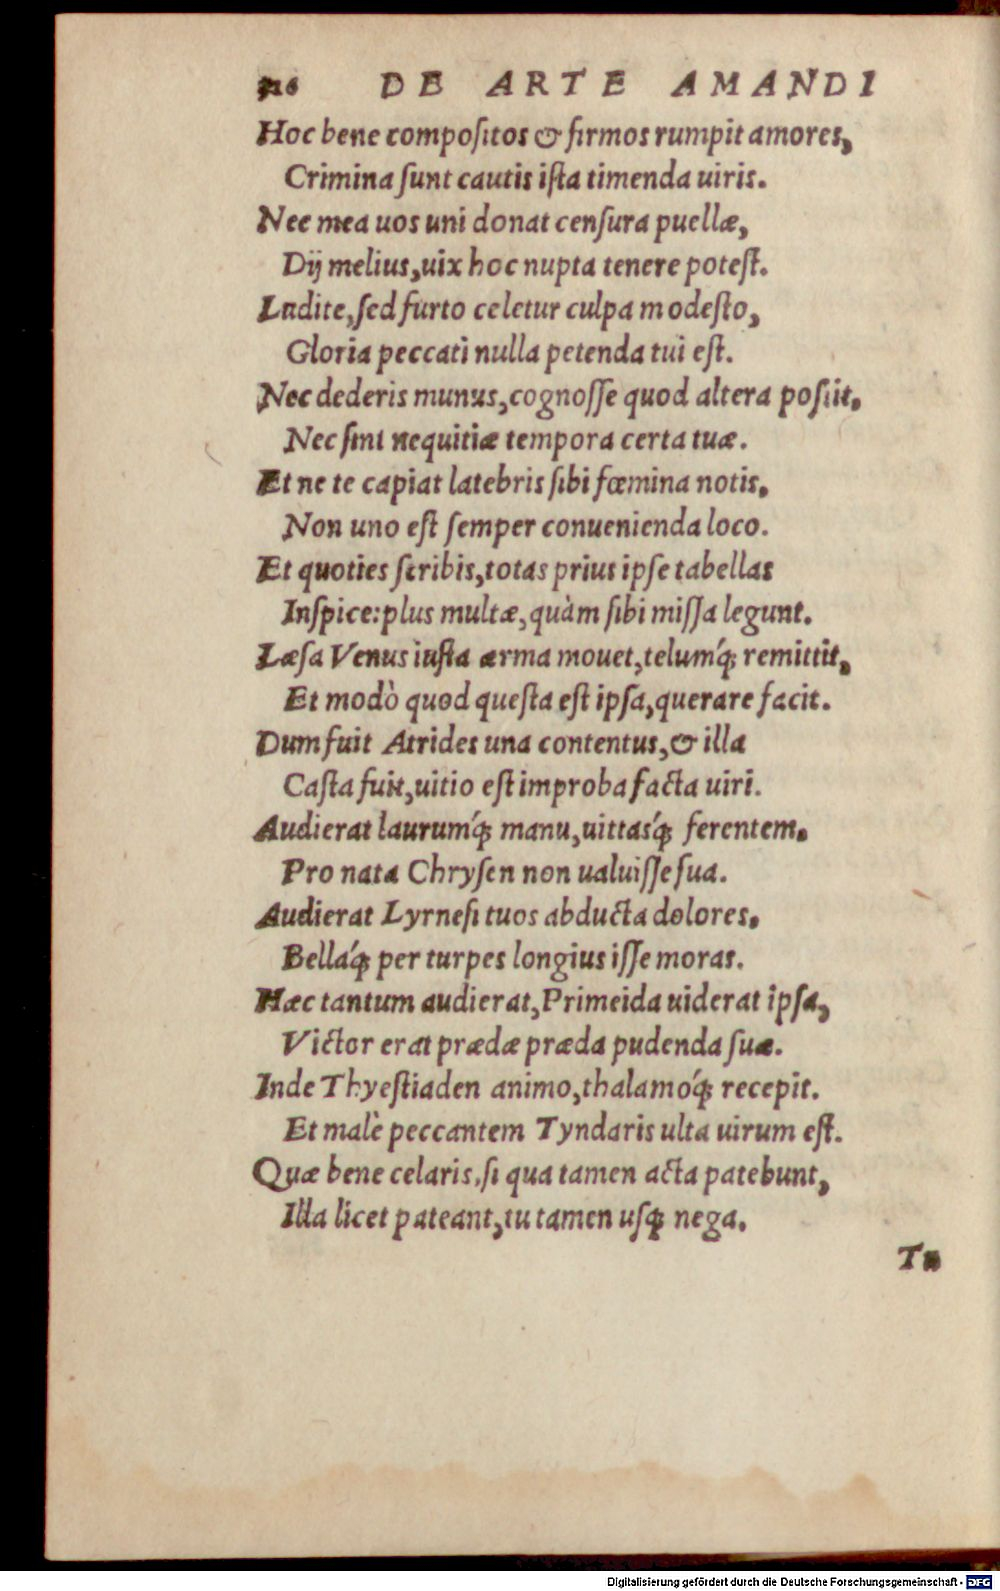 216 DE ARTE AMANDI
Hoc bene compoſitos & firmos rumpit amores,
Crimina ſunt cautis iſta timenda uiris.
Nec mea uos uni donat cenſura puellæ,
Dij melius, uix hoc nupta tenere poteſt.
Ludite, ſed furto celetur culpa modeſto,
Gloria peccati nulla petenda tui eſt.
Nec dederis munus, cognoſſe quod altera poſſit,
Nec ſint nequitiæ tempora certa tuæ.
Et ne te capiat latebris ſibi fœmina notis,
Non uno eſt ſemper conuenienda loco.
Et quoties ſcribis, totas prius ipſe tabellas
Inſpice: plus multæ, quàm ſibi miſſa legunt.
Læſa Venus iuſta arma mouet, telumq́; remittit,
Et modò quod queſta eſt ipſa, querare facit.
Dum fuit Atrides una contentus, & illa
Caſta fuit, uitio eſt improba facta uiri.
Audierat laurumq́; manu, uittasq́; ferentem,
Pro nata Chryſen non ualuiſſe ſua.
Audierat Lyrneſi tuos abducta dolores,
Bellaq́; per turpes longius iſſe moras.
Hæc tantum audierat, Primeida uiderat ipſa,
Victor erat prædæ præda pudenda ſuæ.
Inde Thyeſtiaden animo, thalamoq́; recepit.
Et malè peccantem Tyndaris ulta uirum eſt.
Quæ bene celaris, ſi qua tamen acta patebunt,
Illa licet pateant, tu tamen uſq; nega.
Tu
Digitalisierung gefördert durch die Deutsche Forschungsgemeinschaft - DFG